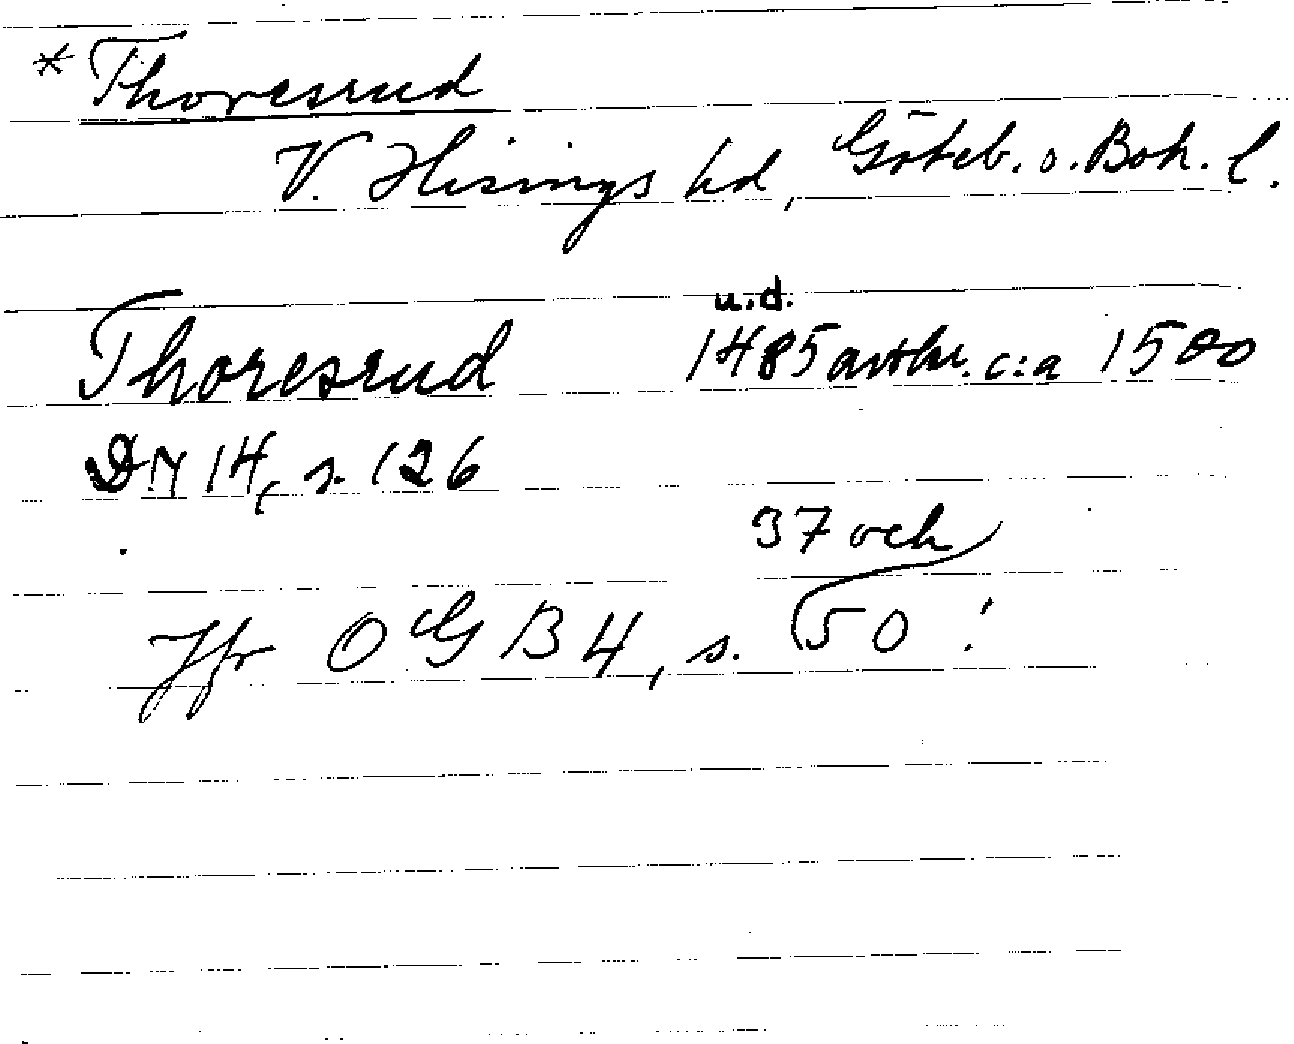 * Thoresrud
V. Hisings hd, Göteb. o. Boh. l.
u.d.
Thoresrud 1485 avskr. c:a 1500
DN 14, s. 126
37 och
Jfr OGB 4, s. 50!